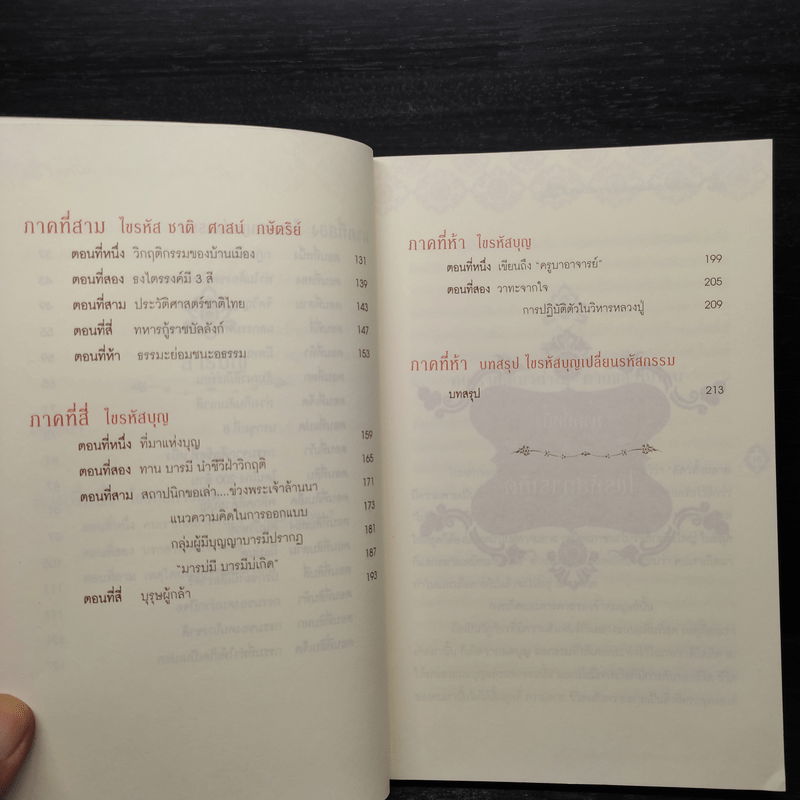 ภาคที่สาม ไขรหัส ชาติ ศาสน์ กษัตริย์
ตอนที่หนึ่ง วิกฤติกรรมของบ้านเมือง 131
ตอนที่สอง ธงไตรรงค์มี 3 สี 139
ตอนที่สาม ประวัติศาสตร์ชาติไทย 143
ตอนที่สี่ ทหารกู้ราชบัลลังก์ 147
ตอนที่ห้า ธรรมะย่อมชนะอธรรม 153
ภาคที่สี่ ไขรหัสบุญ
ตอนที่หนึ่ง ที่มาแห่งบุญ 159
ตอนที่สอง ทาน บารมี นำชีวีฝ่าวิกฤติ 165
ตอนที่สาม สถาปนิกขอเล่า....ช่วงพระเจ้าล้านนา 171
แนวความคิดในการออกแบบ 173
กลุ่มผู้มีบุญญาบารมีปรากฏ 181
"มารบ่มี บารมีบ่เกิด" 187
ตอนที่สี่ บุรุษผู้กล้า 193
ภาคที่ห้า ไขรหัสบุญ
ตอนที่หนึ่ง เขียนถึง "ครูบาอาจารย์" 199
ตอนที่สอง วาทะจากใจ 205
การปฏิบัติตัวในวิหารหลวงปู่ 209
ภาคที่ห้า บทสรุป ไขรหัสบุญเปลี่ยนรหัสกรรม
บทสรุป 213